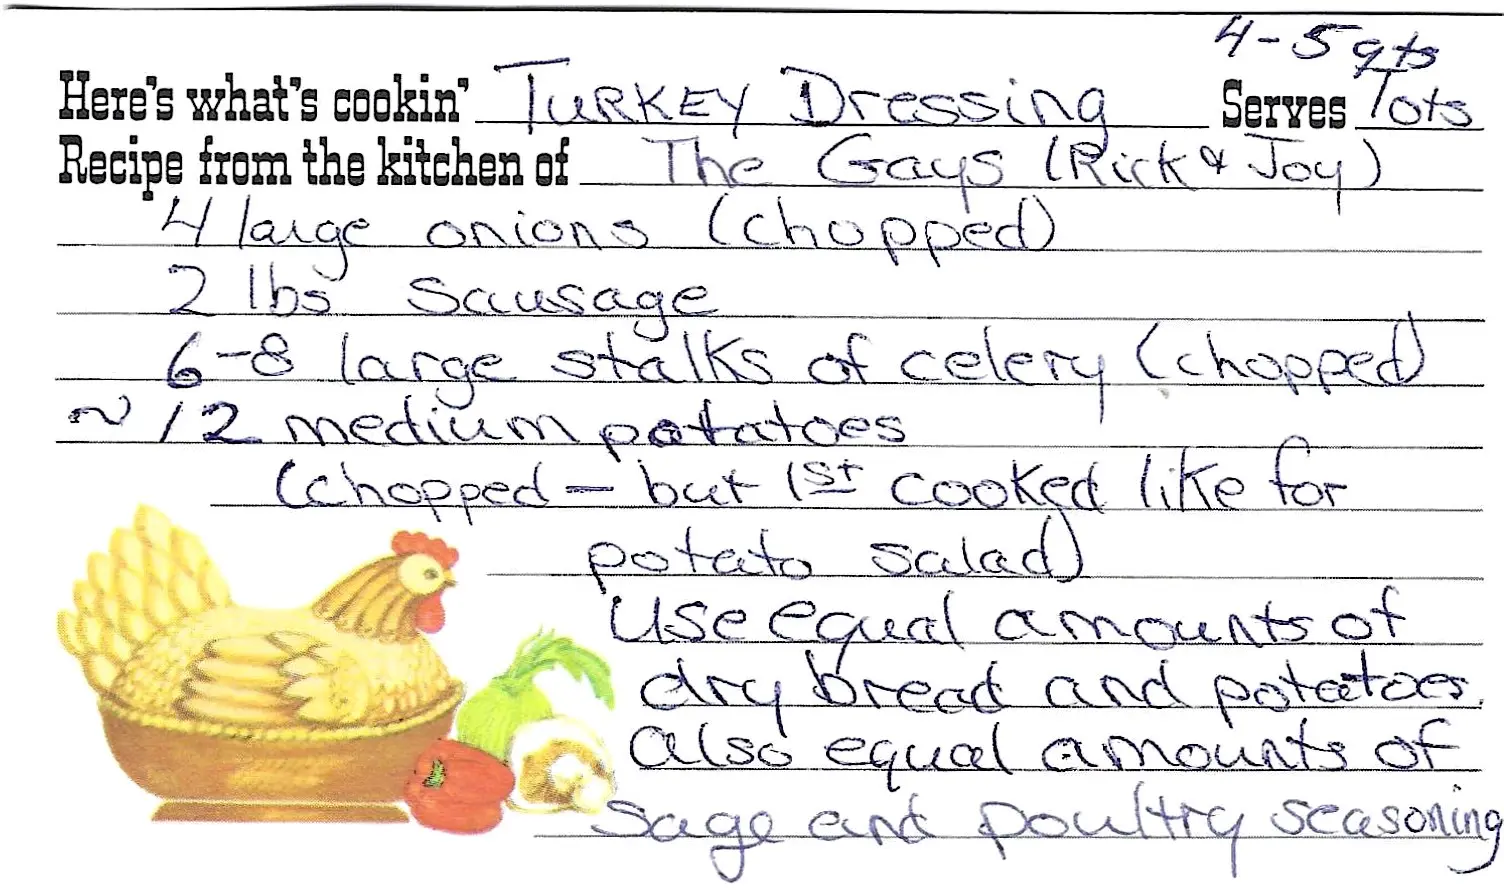 4-5 qts
Here's what's cookin' Turkey Dressing Serves Tots
Recipe from the kitchen of The Gays (Rick & Joy)
4 large onions (chopped)
2 lbs sausage
6-8 large stalks of celery (chopped)
~ 12 medium potatoes
(chopped - but 1st cooked like for
potato salad)
Use equal amounts of
dry bread and potatoes.
Also equal amounts of
sage and poultry seasoning